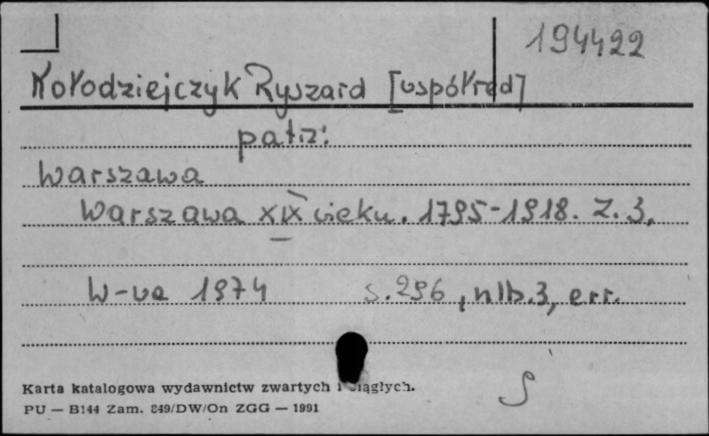 194422
Kołodziejczyk Ryszard [współred]
patrz:
Warszawa
Warszawa XIX wieku. 1795-1918. Z. 3.
W-wa 1974 s. 296, nlb. 3, err.
Karta katalogowa wydawnictw zwartych i ciągłych.
PU — B144 Zam. 849/DW/On ZGG — 1991